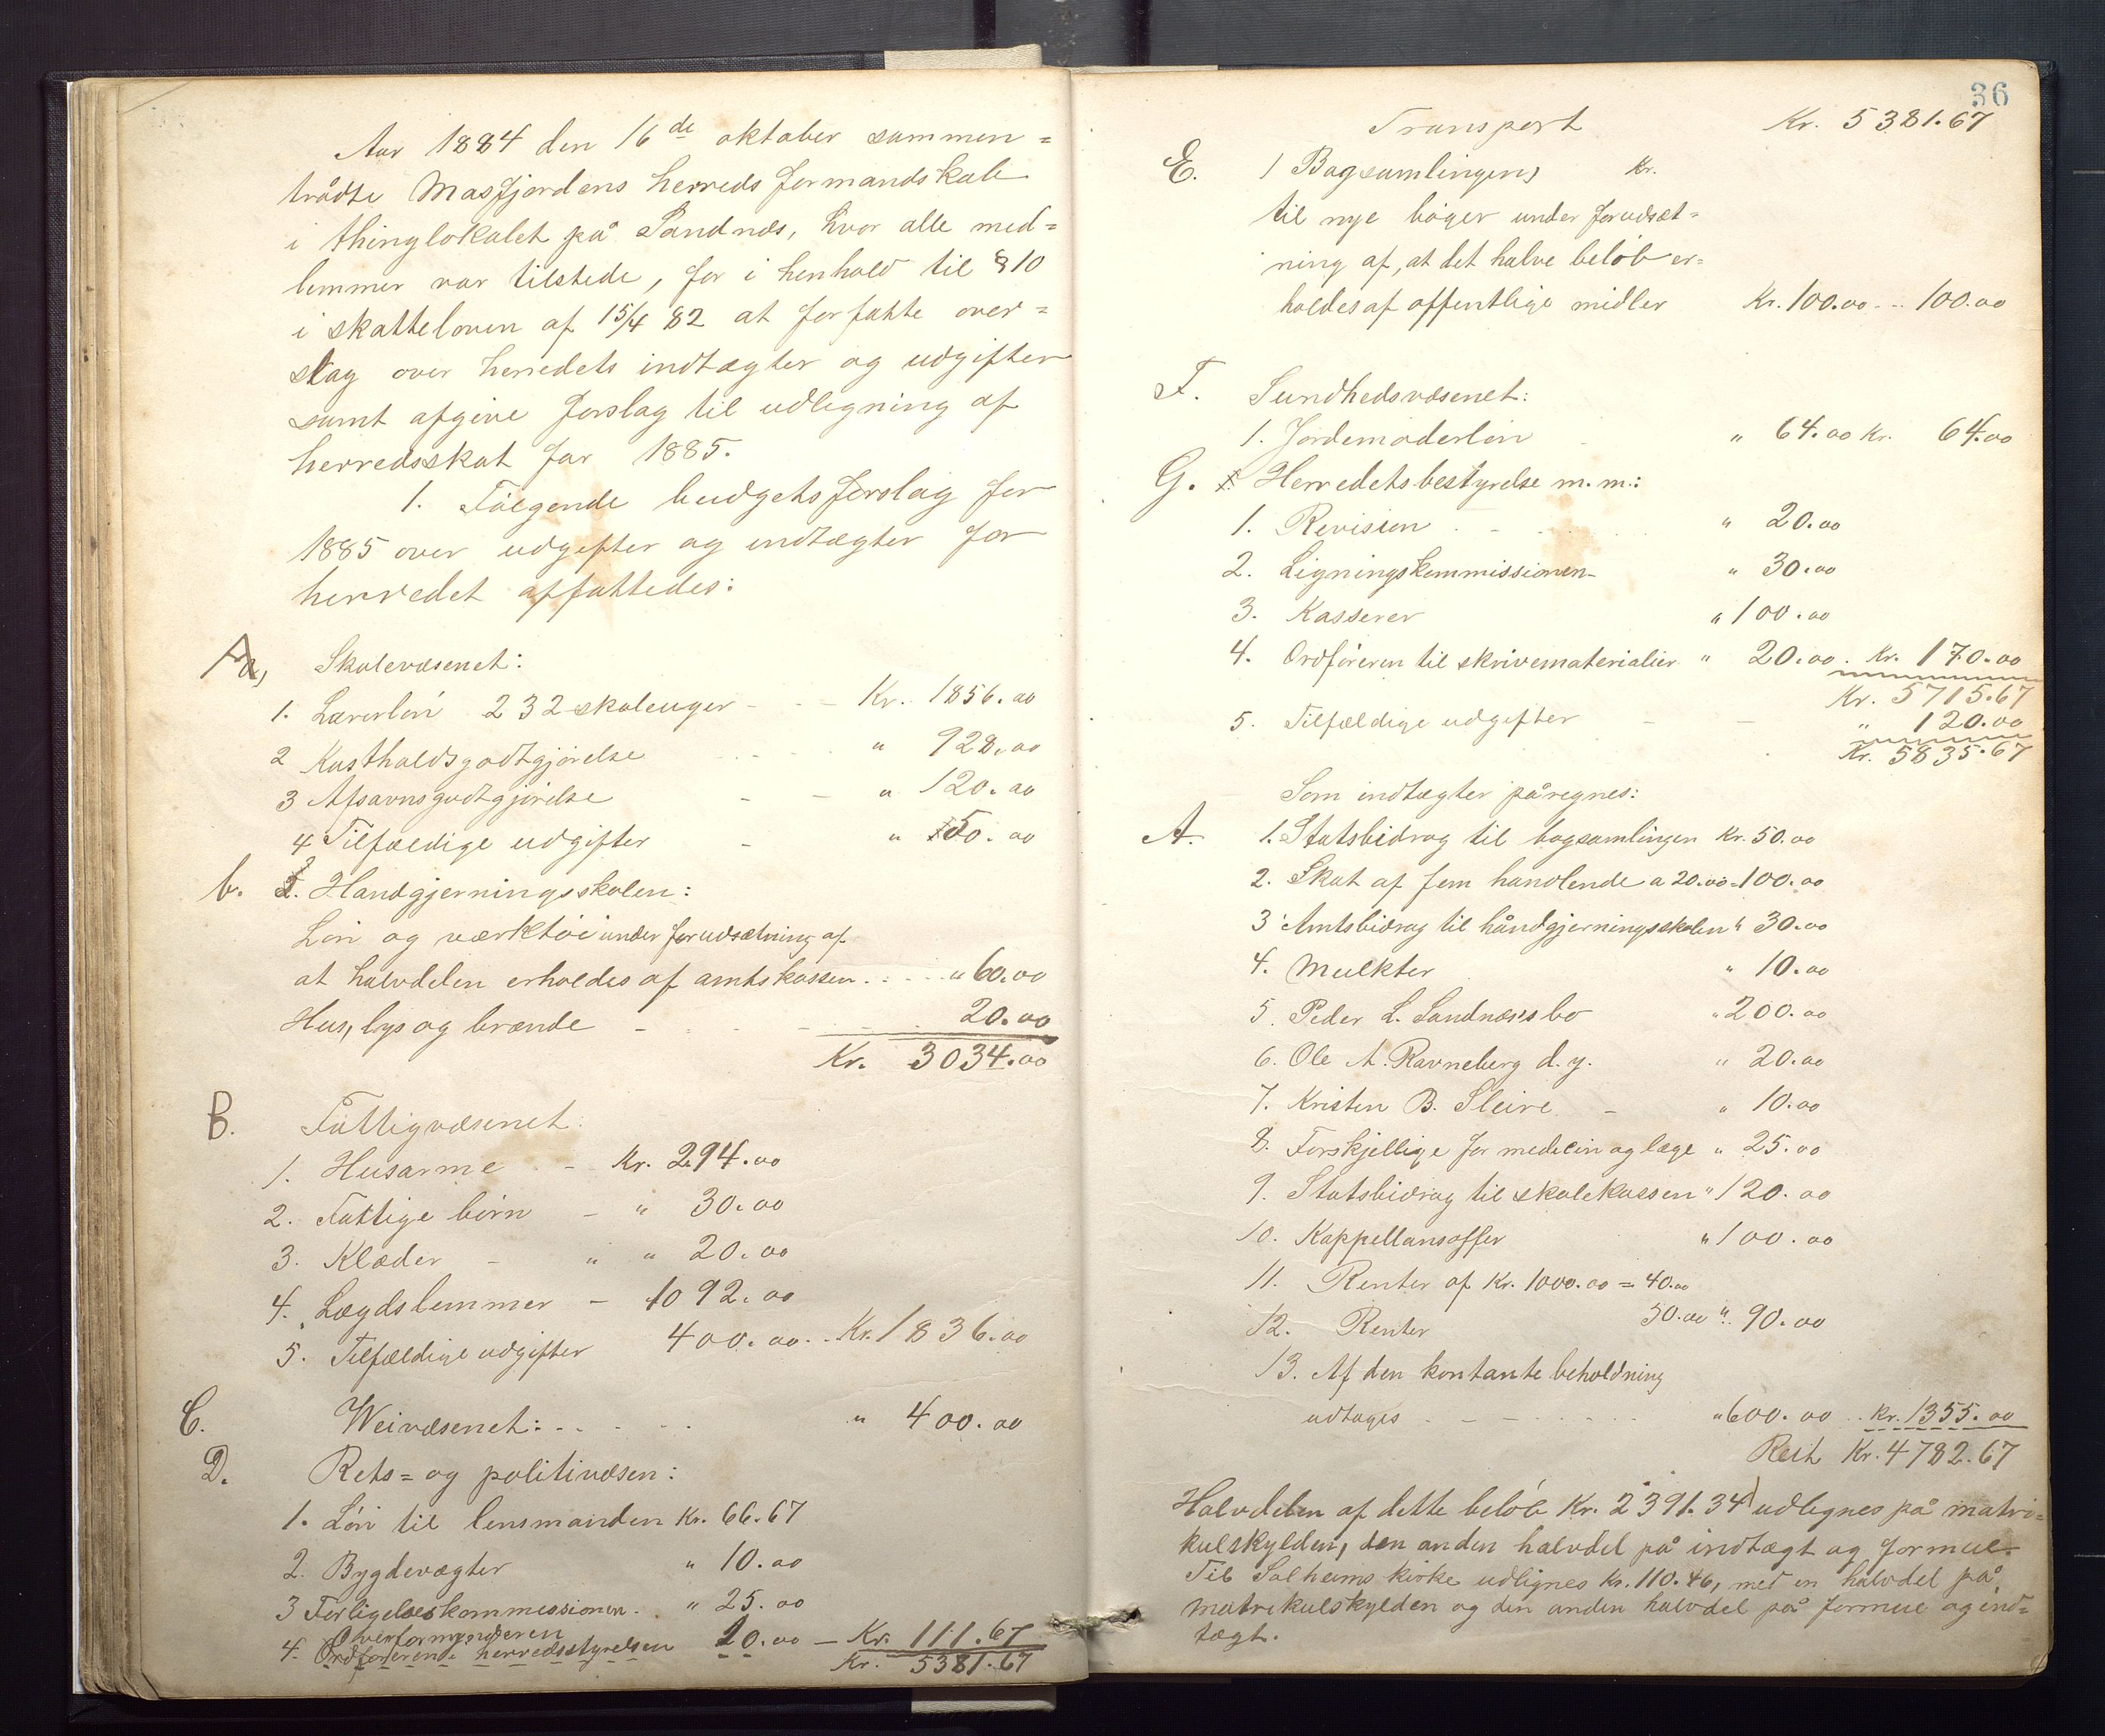 Aar 1884 den 16de oktober sammen=
trådte Masfjordens herreds formandskab
i thinglokalet på Sandnæs, hvor alle med=
lemmer var tilstede, for i henhold til § 10
i skatteloven af 15/4 82 at forfatte over=
slag over herredets indtægter og udgifter
samt afgive forslag til udligning af
herredsskat for 1885.
1. Følgende budgetsforslag for
1885 over udgifter og indtægter for
herredet affattedes:
A a, Skolevæsenet:
1. Lærerløn 232 skoleuger - - - Kr. 1856.00
2 Kostholdsgodtgjørelse - . . . " 928.00
3 Afsavnsgodtgjørelse - - " 120.00
4 Tilfældige udgifter - " 50.00
b. Handgjerningsskolen:
Løn og værktøi under forudsætning af
at halvdelen erholdes af amtskassen . : - - " 60.00
Hus, lys og brænde - - - - 20.00
Kr. 3034.00
B. Fattigvæsenet:
1. Husarme - Kr. 294.00
2. Fattige børn - " 30.00
3. Klæder - " " 20.00
4. Lægdslemmer - 1092.00
5. Tilfældige udgifter 400.00 . . Kr. 1836.00
C. Weivæsenet: - - - - - " 400.00
D. Rets= og politivæsen:
1. Løn til lensmanden Kr. 66.67
2. Bygdevægter " 10.00
3 Forligelseskommissionen . " 25.00
Overformynderen
4. Ordføreren i herredsstyrelsen 10.00 - Kr. 111.67
Kr. 5381.67
36
Transport Kr. 5381.67
E. 1 Bogsamlingen, Kr.
til nye bøger under forudsæt=
ning af, at det halve beløb er=
holdes af offentlige midler Kr. 100.00 - - 100.00
F. Sundhedsvæsenet:
1. Jordemoderløn " 64.00 Kr. 64.00
G. Herredetsbestyrelse m.m.:
1. Revision . - - " 20.00
2. Ligningskommissionen - " 30.00
3. Kasserer " 100.00
4. Ordføreren til skrivematerialier " 20.00 . Kr. 170.00
Kr. 5715.67
5. Tilfældige udgifter - " 120.00
Kr. 5835.67
Som indtægter påregnes:
A. 1. Statsbidrag til bogsamlingen Kr. 50.00
2. Skat af fem handlende a 20.00 = 100.00
3 Amtsbidrag til håndgjerningsskolen " 30.00
4. Mulkter " 10.00
5. Peder L. Sandnæs's bo " 200.00
6. Ole A. Ravneberg d.y. " 20.00
7. Kristen B. Sleire - " 10.00
8. Forskjellige for medicin og læge " 25.00
9. Statsbidrag til skolekassen " 120.00
10. Kappellansoffer " 100.00
11. Renter af Kr. 1000.00 = 40.00
12. Renter 50.00 " 90.00
13. Af den kontante beholdning
udtages - - - - - - " 600.00 . . Kr. 1355.00
Rest Kr. 4782.67
Halvdelen af dette beløb Kr. 2391.34 udlignes på matri=
kulskylden, den anden halvdel på indtægt og formue.
Til Solheims kirke udlignes Kr. 110.46, med en halvdel på
matrikulskylden og den anden halvdel på formue og ind=
tægt.